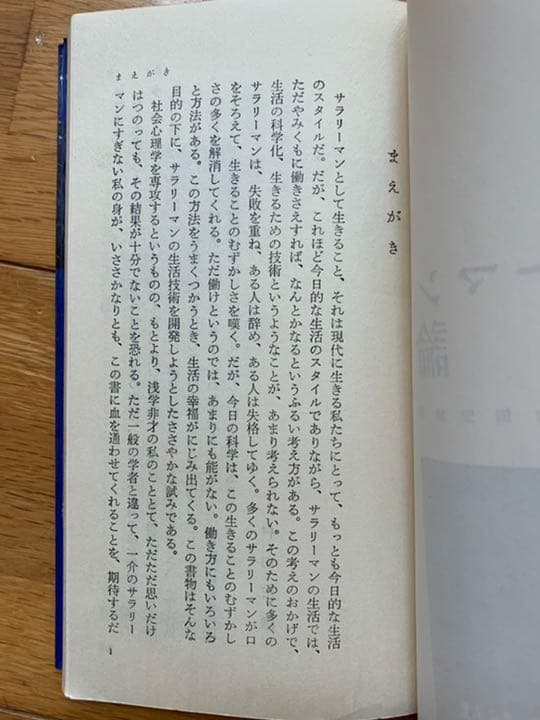 まえがき
サラリーマンとして生きること、それは現代に生きる私たちにとって、もっとも今日的な生活
のスタイルだ。だが、これほど今日的な生活のスタイルでありながら、サラリーマンの生活では、
ただやみくもに働きさえすれば、なんとかなるというふるい考え方がある。この考えのおかげで、
生活の科学化、生きるための技術というようなことが、あまり考えられない。そのために多くの
サラリーマンは、失敗を重ね、ある人は辞め、ある人は失格してゆく。多くのサラリーマンが口
をそろえて、生きることのむずかしさを嘆く。だが、今日の科学は、この生きることのむずかし
さの多くを解消してくれる。ただ働けというのでは、あまりにも能がない。働き方にもいろいろ
と方法がある。この方法をうまくつかうとき、生活の幸福がにじみ出てくる。この書物はそんな
目的の下に、サラリーマンの生活技術を開発しようとしたささやかな試みである。
社会心理学を専攻するというものの、もとより、浅学非才の私のこととて、ただただ思いだけ
はつのっても、その結果が十分でないことを恐れる。ただ一般の学者と違って、一介のサラリー
マンにすぎない私の身が、いささかなりとも、この書に血を通わせてくれることを、期待するだ
まえがき
1
ーマン
論